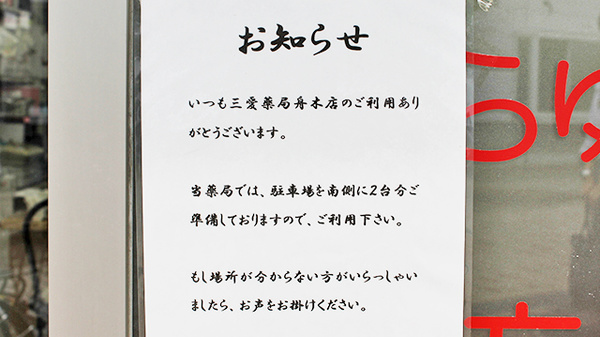 お知らせ
いつも三愛薬局舟木店のご利用あり
がとうございます。
当薬局では、駐車場を南側に2台分ご
準備しておりますので、ご利用下さい。
もし場所が分からない方がいらっしゃい
ましたら、お声をお掛けください。